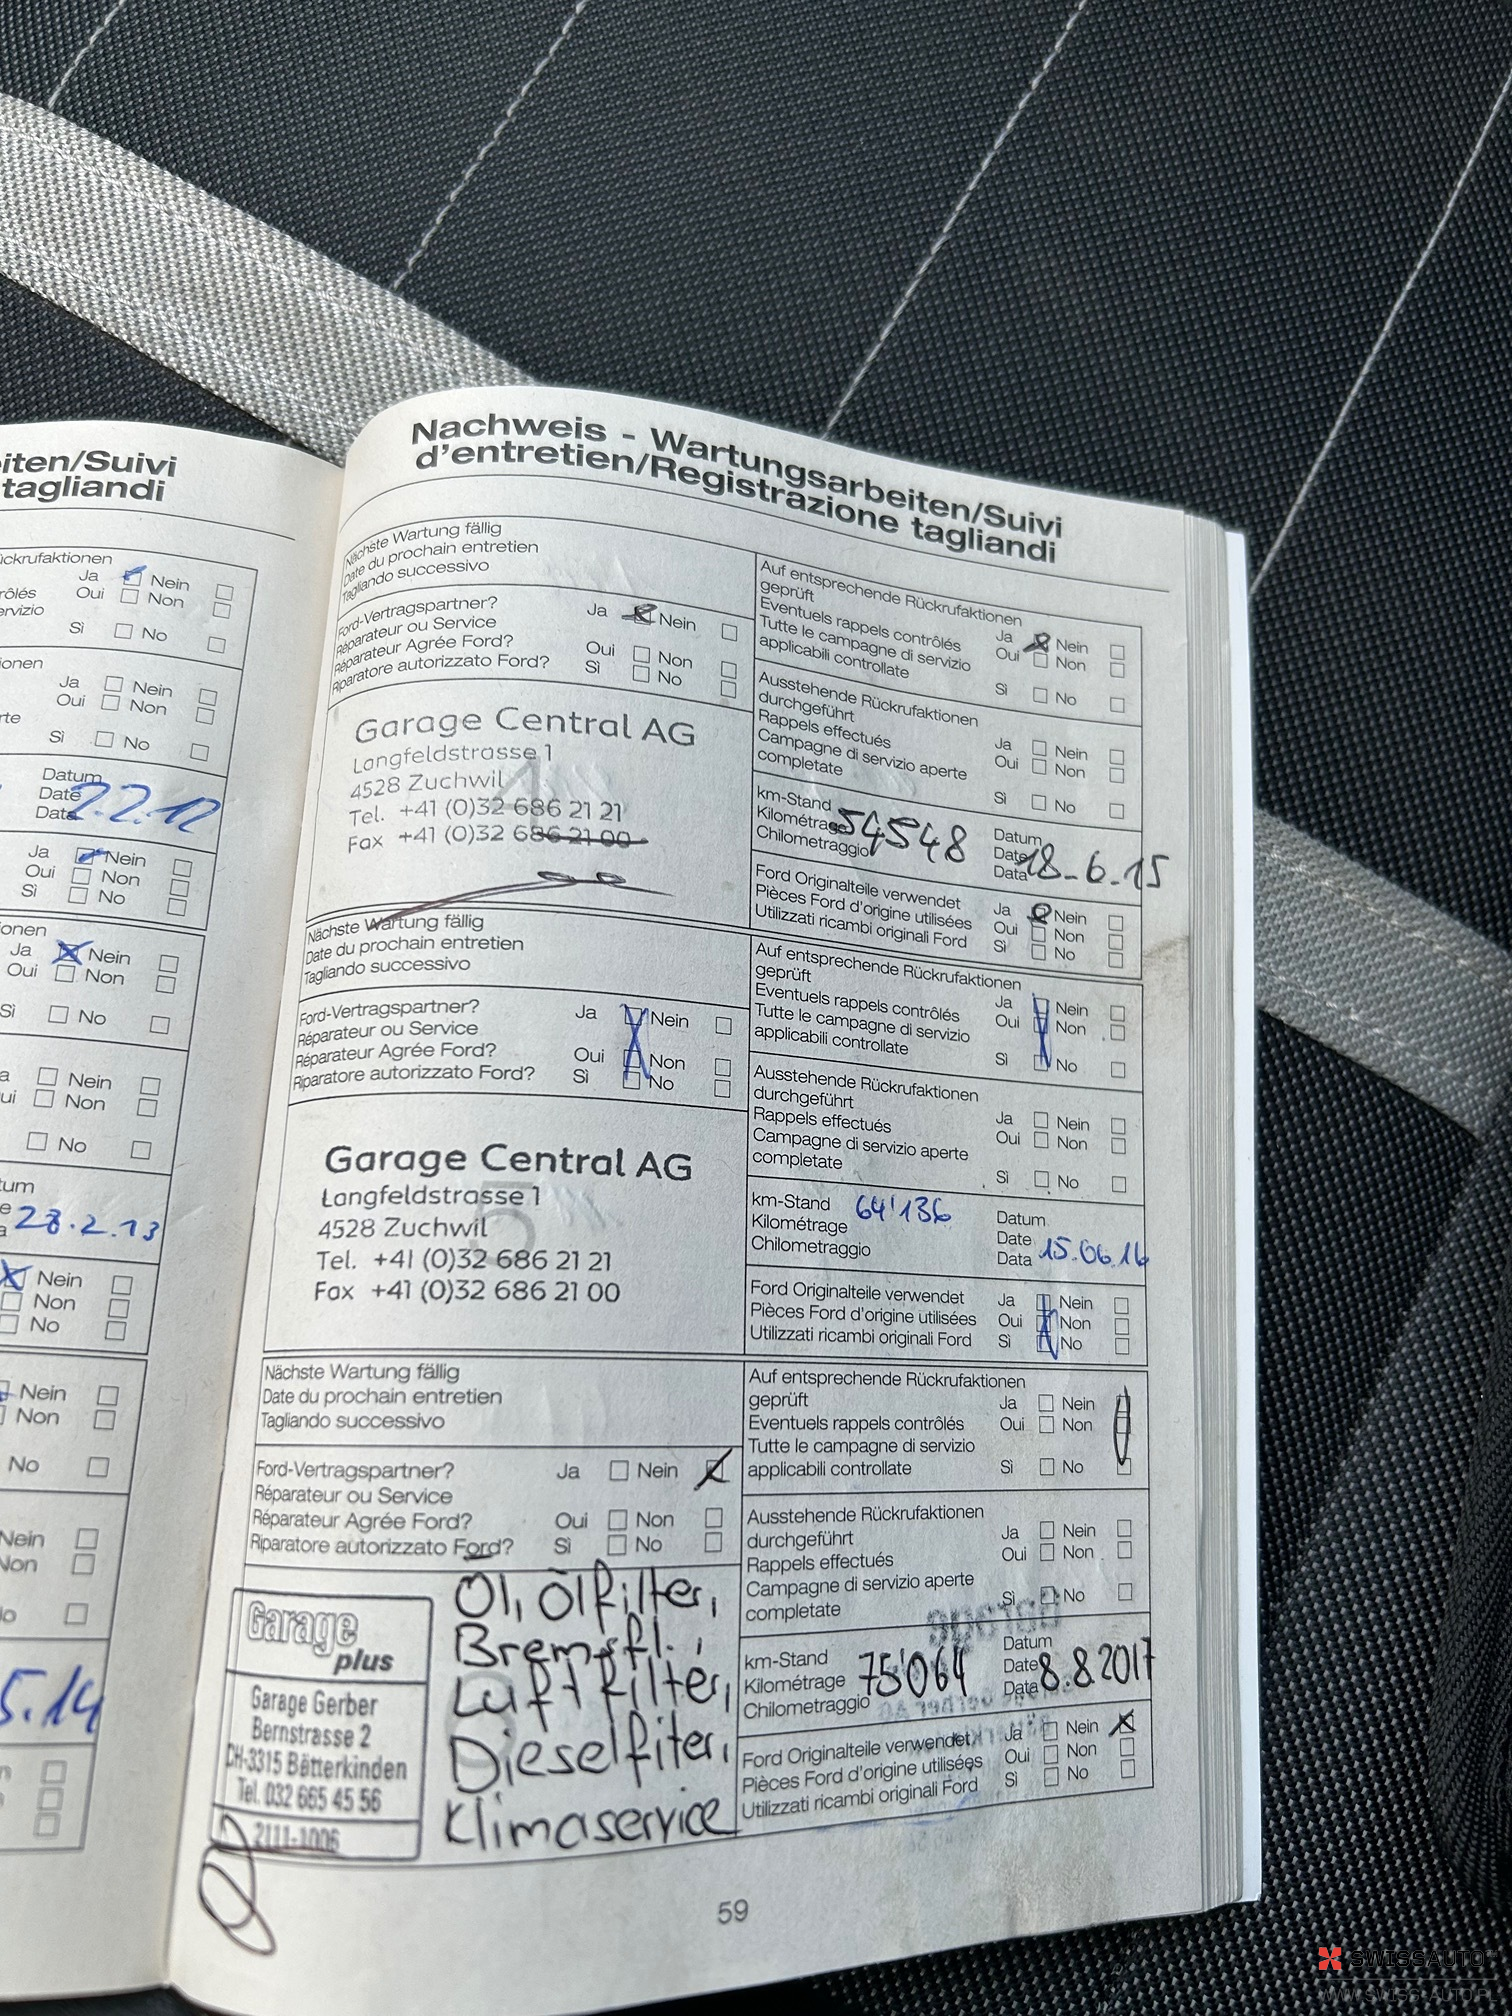 eiten/Suivi
tagliandi
ückrufaktionen
Ja Nein
rôlés Oui Non
ervizio
Sì No
ionen
Ja Nein
Oui Non
rte
Sì No
Datum
Date
Data 2.2.12
Ja Nein
Oui Non
Sì No
ionen
Ja Nein
Oui Non
Sì No
a Nein
ui Non
No
tum
e
a 28.2.13
Nein
Non
No
Nein
Non
No
Nein
Non
No
5.14
Nachweis - Wartungsarbeiten/Suivi
d'entretien/Registrazione tagliandi
Nächste Wartung fällig
Date du prochain entretien
Tagliando successivo
Ford-Vertragspartner? Ja Nein
Réparateur ou Service
Réparateur Agrée Ford? Oui Non
Riparatore autorizzato Ford? Sì No
4
Garage Central AG
Langfeldstrasse 1
4528 Zuchwil
Tel. +41 (0)32 686 21 21
Fax +41 (0)32 686 21 00
Auf entsprechende Rückrufaktionen
geprüft Ja Nein
Eventuels rappels contrôlés Oui Non
Tutte le campagne di servizio
applicabili controllate Sì No
Ausstehende Rückrufaktionen
durchgeführt Ja Nein
Rappels effectués Oui Non
Campagne di servizio aperte
completate Sì No
km-Stand
Kilométrage
Chilometraggio
54548
Datum
Date
Data
18-6.15
Ford Originalteile verwendet Ja Nein
Pièces Ford d'origine utilisées Oui Non
Utilizzati ricambi originali Ford Sì No
Nächste Wartung fällig
Date du prochain entretien
Tagliando successivo
Ford-Vertragspartner? Ja Nein
Réparateur ou Service
Réparateur Agrée Ford? Oui Non
Riparatore autorizzato Ford? Sì No
5
Garage Central AG
Langfeldstrasse 1
4528 Zuchwil
Tel. +41 (0)32 686 21 21
Fax +41 (0)32 686 21 00
Auf entsprechende Rückrufaktionen
geprüft Ja Nein
Eventuels rappels contrôlés Oui Non
Tutte le campagne di servizio
applicabili controllate Sì No
Ausstehende Rückrufaktionen
durchgeführt Ja Nein
Rappels effectués Oui Non
Campagne di servizio aperte
completate Sì No
km-Stand 64'136
Kilométrage
Chilometraggio
Datum
Date
Data 15.06.16
Ford Originalteile verwendet Ja Nein
Pièces Ford d'origine utilisées Oui Non
Utilizzati ricambi originali Ford Sì No
Nächste Wartung fällig
Date du prochain entretien
Tagliando successivo
Ford-Vertragspartner? Ja Nein
Réparateur ou Service
Réparateur Agrée Ford? Oui Non
Riparatore autorizzato Ford? Sì No
Garage
plus
Garage Gerber
Bernstrasse 2
CH-3315 Bätterkinden
Tel. 032 665 45 56
2111-1006
Öl, Ölfilter,
Bremsfl.,
Luftfilter,
Dieselfilter,
Klimaservice
Auf entsprechende Rückrufaktionen
geprüft Ja Nein
Eventuels rappels contrôlés Oui Non
Tutte le campagne di servizio
applicabili controllate Sì No
Ausstehende Rückrufaktionen
durchgeführt Ja Nein
Rappels effectués Oui Non
Campagne di servizio aperte
completate Sì No
km-Stand
Kilométrage 75'064
Chilometraggio
Datum
Date 8.8.2017
Data
Ford Originalteile verwendet Ja Nein
Pièces Ford d'origine utilisées Oui Non
Utilizzati ricambi originali Ford Sì No
59
SWISSAUTO
WWW.SWISS-AUTO.PL